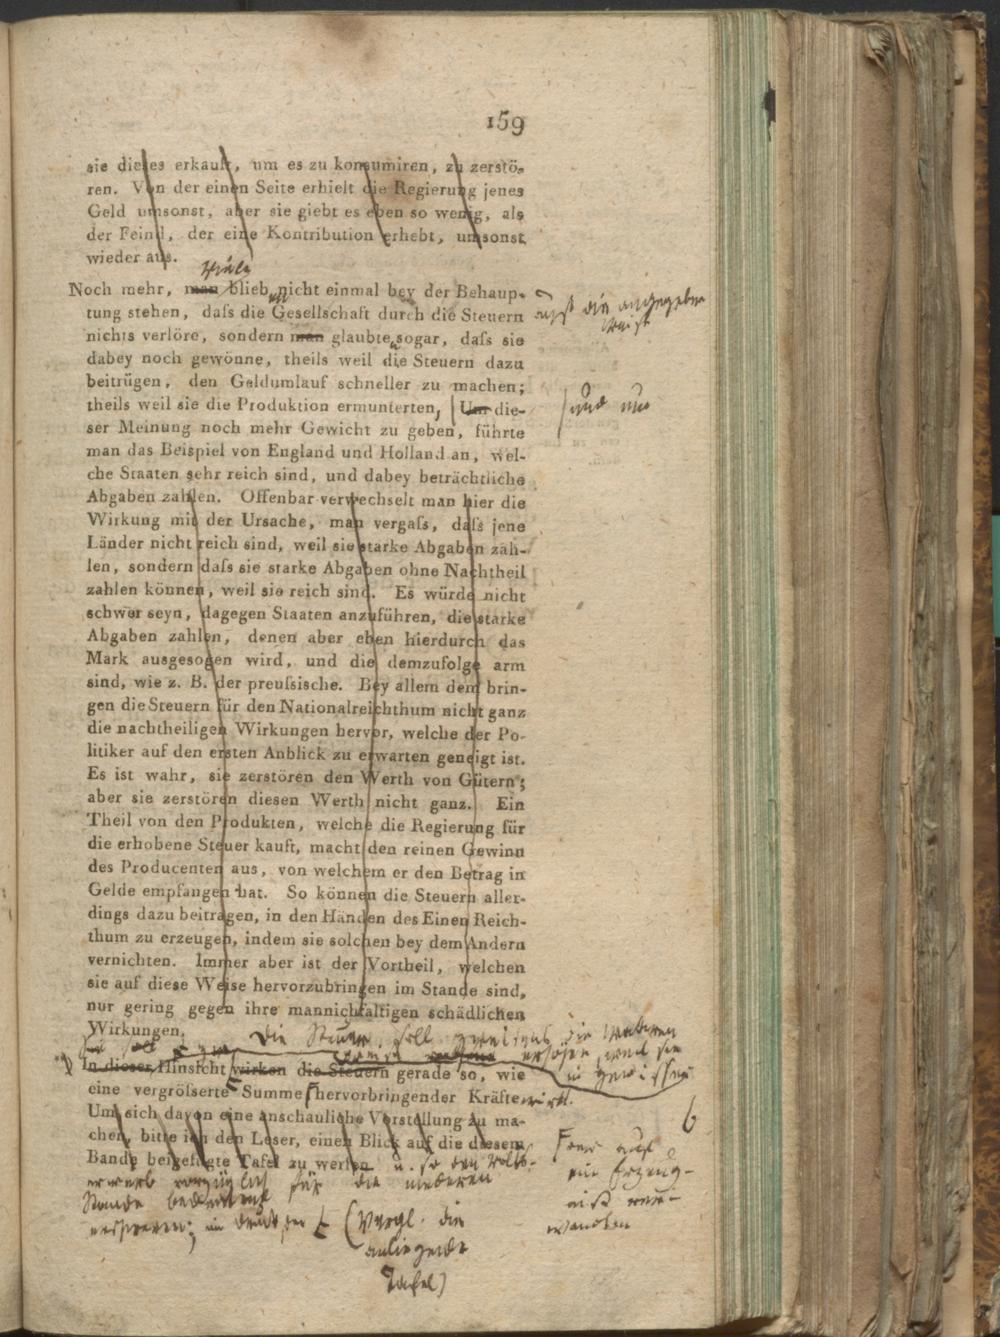 159
sie dieses erkauft, um es zu konsumiren, zu zerstö-
ren. Von der einen Seite erhielt die Regierung jenes
Geld umsonst, aber sie giebt es eben so wenig, als
der Feind, der eine Kontribution erhebt, umsonst
wieder aus.
Noch mehr, man blieb nicht einmal bey der Behaup-
tung stehen, daſs die Gesellschaft durch die Steuern
nichts verlöre, sondern man glaubte sogar, daſs sie
dabey noch gewönne, theils weil die Steuern dazu
beitrügen, den Geldumlauf schneller zu machen;
theils weil sie die Produktion ermunterten, Um die-
und um
ser Meinung noch mehr Gewicht zu geben, führte
man das Beispiel von England und Holland an, wel-
che Staaten sehr reich sind, und dabey beträchtliche
Abgaben zahlen. Offenbar verwechselt man hier die
Wirkung mit der Ursache, man vergaſs, daſs jene
Länder nicht reich sind, weil sie starke Abgaben zah-
len, sondern daſs sie starke Abgaben ohne Nachtheil
zahlen können, weil sie reich sind. Es würde nicht
schwer seyn, dagegen Staaten anzuführen, die starke
Abgaben zahlen, denen aber eben hierdurch das
Mark ausgesogen wird, und die demzufolge arm
sind, wie z. B. der preuſsische. Bey allem dem brin-
gen die Steuern für den Nationalreichthum nicht ganz
die nachtheiligen Wirkungen hervor, welche der Po-
litiker auf den ersten Anblick zu erwarten geneigt ist.
Es ist wahr, sie zerstören den Werth von Gütern;
aber sie zerstören diesen Werth nicht ganz. Ein
Theil von den Produkten, welche die Regierung für
die erhobene Steuer kauft, macht den reinen Gewinn
des Producenten aus, von welchem er den Betrag in
Gelde empfangen hat. So können die Steuern aller-
dings dazu beitragen, in den Händen des Einen Reich-
thum zu erzeugen, indem sie solchen bey dem Andern
vernichten. Immer aber ist der Vortheil, welchen
sie auf diese Weise hervorzubringen im Stande sind,
nur gering gegen ihre mannichfaltigen schädlichen
Wirkungen.
Die Steuer soll
In dieser Hinsicht wirken die Steuern gerade so, wie
eine vergröſserte Summe hervorbringender Kräfte wirkt.
Um sich davon eine anschauliche Vorstellung zu ma-
chen, bitte ich den Leser, einen Blick auf die diesem
Bande beigefügte Tafel zu werfen
für die niederen
(Vergl. die
anliegende
Tafel)